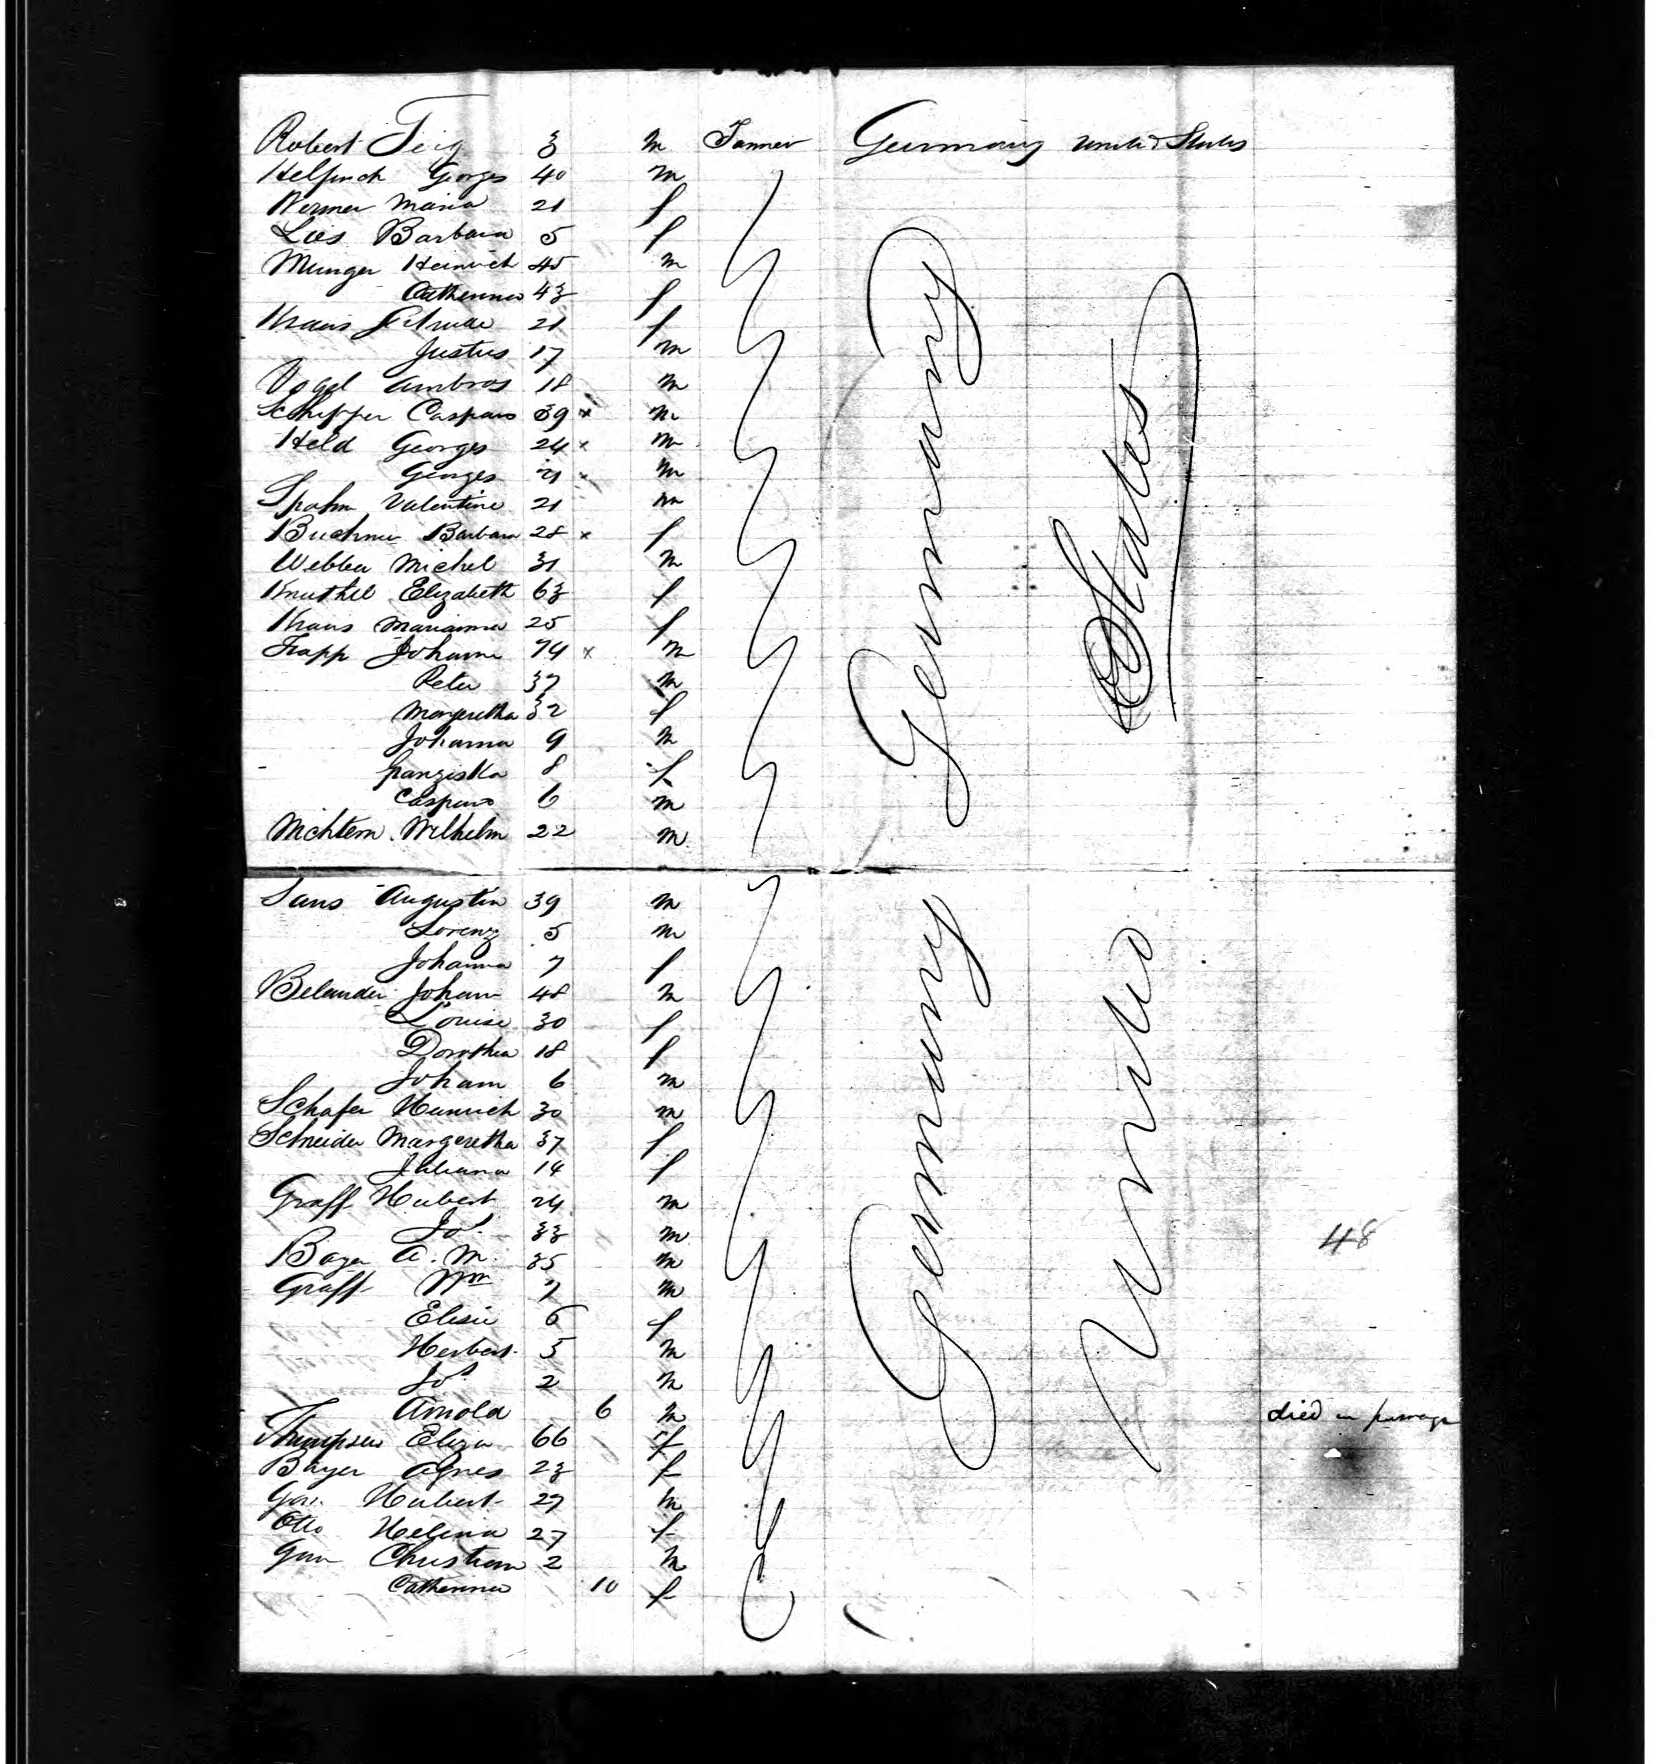 Robert Teig 3 m Farmer Germany United States
Helfrich Georges 40 m
Werner Maria 21 f
Lois Barbara 5 f
Munger Heinrich 45 m
Catherina 43 f
Kraus 21 f
Justus 17 m
Vogel Ambros 18 m
Schipper Caspars 39 x m
Held Georges 24 x m
Georges 21 x m
Spohn Valentine 21 m
Buchner Barbara 28 x f
Webber Michel 31 m
Knuthel Elizabeth 63 f
Kraus Marianna 25 f
Trapp Johann 74 x m
Peter 37 m
Margretha 32 f
Johanna 9 m
Franziska 8 f
Caspars 6 m
Wilhelm 22 m
Germany
States
Sans Augustin 39 m
Lorenz 5 m
Johanna 7 f
Belander Johann 48 m
Louise 30 f
Dorothea 18 f
Joham 6 m
Schafer Heinrich 30 m
Schneider Margeretha 37 f
Juliana 14 f
Graff Hubert 24 m
Jos. 33 m
Bayer A. M. 35 m
Graff Wm 7 m
Elisie 6 f
Herbert 5 m
Jos 2 m
Arnold 6 m died on passage
Thompson Eliza 66 f
Bayer Agnes 23 f
Hubert 27 m
Otto Helena 27 f
Christian 2 m
Catherina 10 f
Germany
United
48